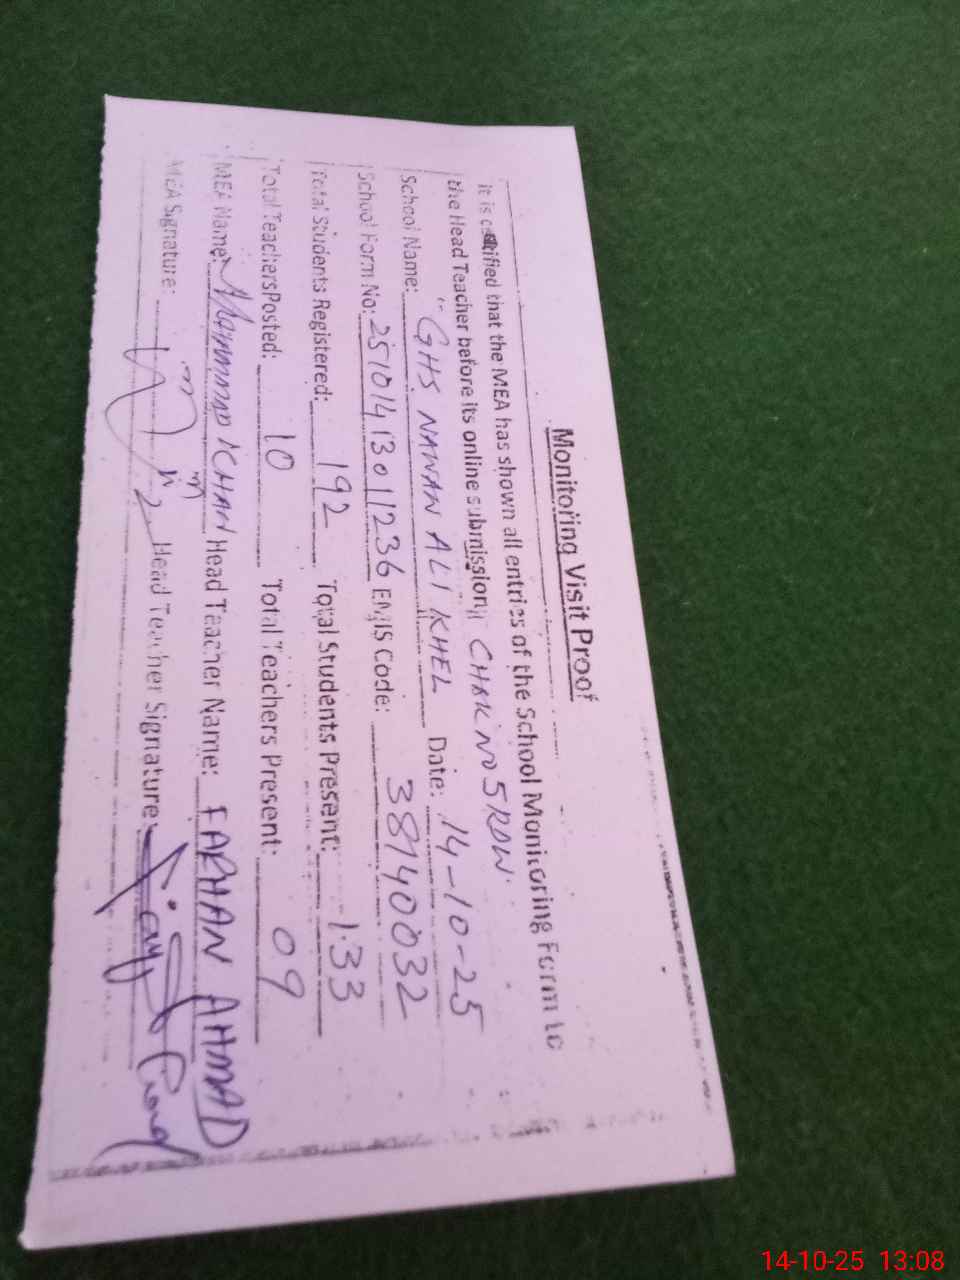 Monitoring Visit Proof
It is certified that the MEA has shown all entries of the School Monitoring Form to
the Head Teacher before its online submission, CHAK NO 5RDW.
School Name: GHS NAWAN ALI KHEL Date: 14-10-25
School Form No: 25101413011236 EMIS Code: 38140032
Total Students Registered: 192 Total Students Present: 133
Total Teachers Posted: 10 Total Teachers Present: 09
MEA Name: MOHAMMAD KHAN Head Teacher Name: FARHAN AHMAD
MEA Signature: Head Teacher Signature:
14-10-25 13:08